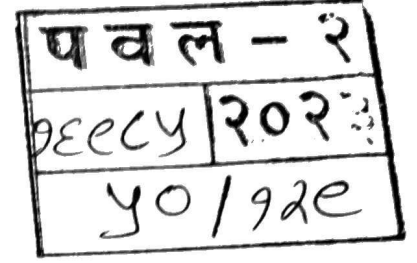 पवल - २
१६९८५ २०२३
५०/१२९